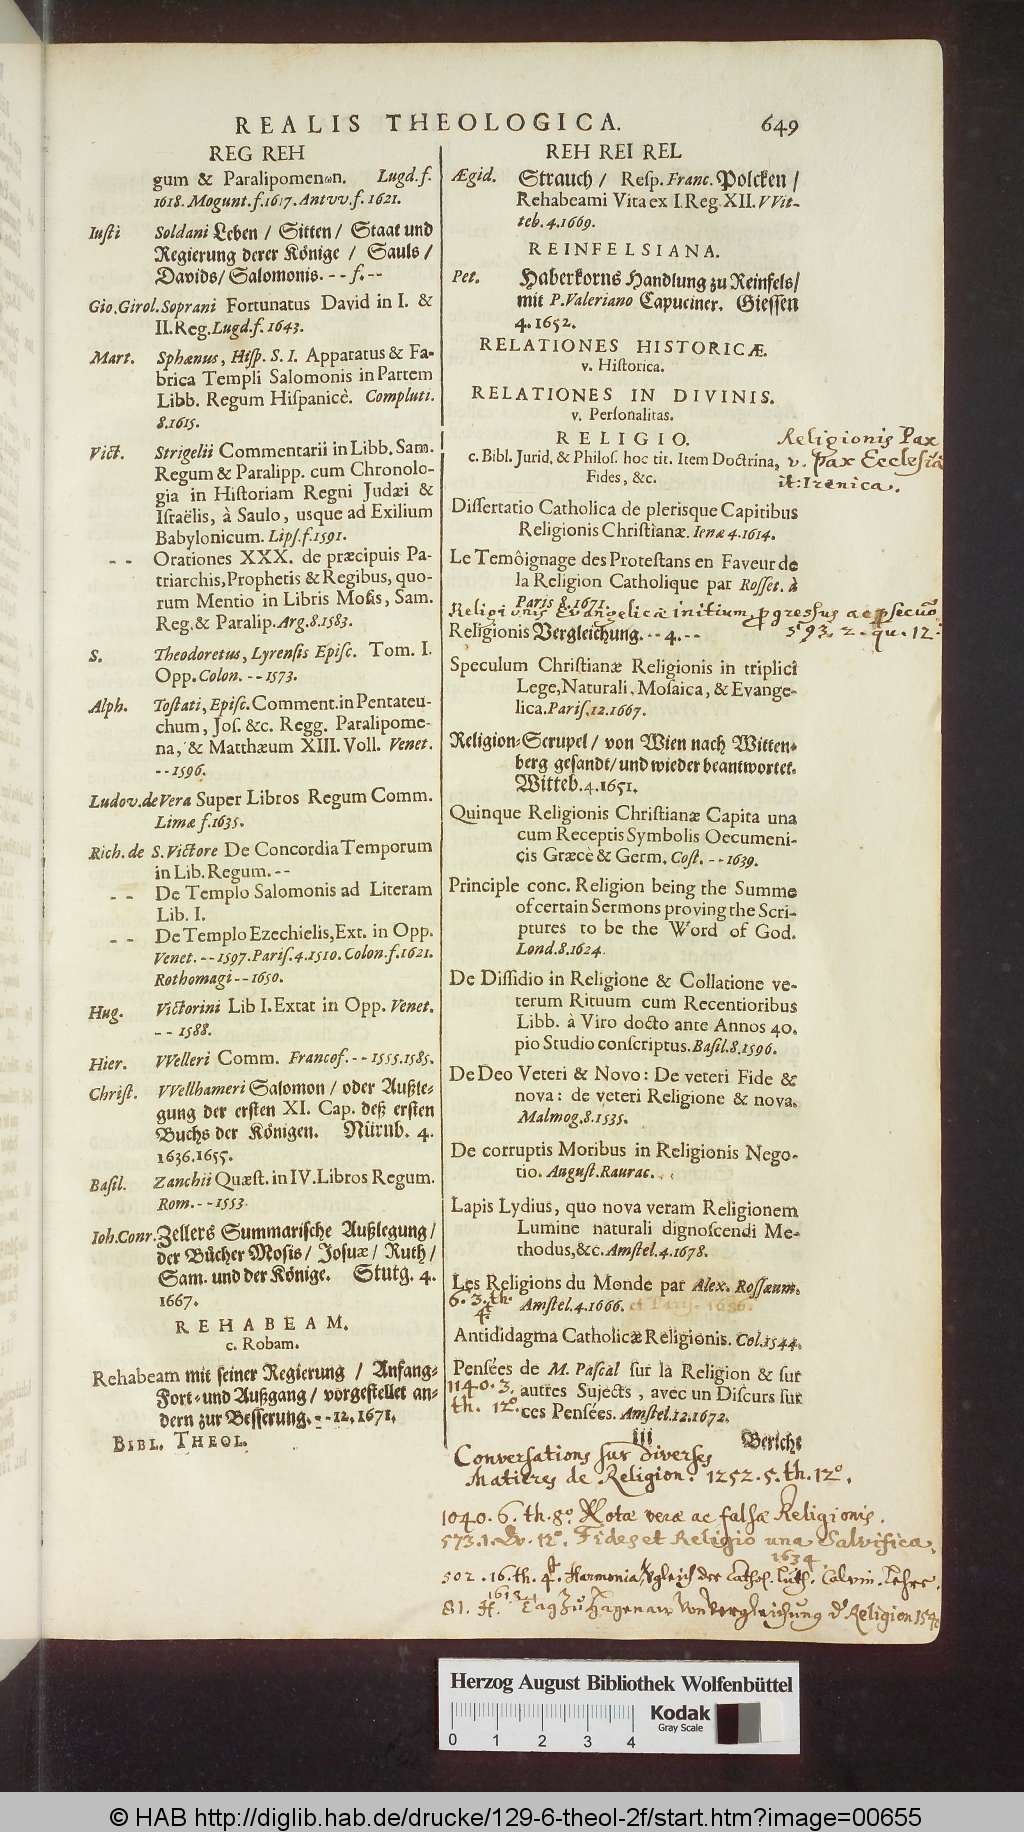 REALIS THEOLOGICA. 649
REG REH
gum & Paralipomenωn. Lugd. f.
1618. Mogunt. f. 1617. Antvv. f. 1621.
Iusti Soldani Leben / Sitten / Staat und
Regierung derer Könige / Sauls /
Davids / Salomonis. -- f. --
Gio. Girol. Soprani Fortunatus David in I. &
II. Reg. Lugd. f. 1643.
Mart. Sphænus, Hisp. S. I. Apparatus & Fa-
brica Templi Salomonis in Partem
Libb. Regum Hispanicè. Compluti.
8. 1615.
Vict. Strigelii Commentarii in Libb. Sam.
Regum & Paralipp. cum Chronolo-
gia in Historiam Regni Judæi &
Israëlis, à Saulo, usque ad Exilium
Babylonicum. Lips. f. 1591.
-- Orationes XXX. de præcipuis Pa-
triarchis, Prophetis & Regibus, quo-
rum Mentio in Libris Mosis, Sam.
Reg. & Paralip. Arg. 8. 1583.
S. Theodoretus, Lyrensis Episc. Tom. I.
Opp. Colon. -- 1573.
Alph. Tostati, Episc. Comment. in Pentateu-
chum, Jos. &c. Regg. Paralipome-
na, & Matthæum XIII. Voll. Venet.
-- 1596.
Ludov. de Vera Super Libros Regum Comm.
Limæ f. 1635.
Rich. de S. Victore De Concordia Temporum
in Lib. Regum. --
-- De Templo Salomonis ad Literam
Lib. I.
-- De Templo Ezechielis, Ext. in Opp.
Venet. -- 1597. Paris. 4. 1510. Colon. f. 1621.
Rothomagi -- 1650.
Hug. Victorini Lib I. Extat in Opp. Venet.
-- 1588.
Hier. VVelleri Comm. Francof. -- 1555. 1585.
Christ. VVellhameri Salomon / oder Außle-
gung der ersten XI. Cap. deß ersten
Buchs der Königen. Nürnb. 4.
1636. 1655.
Basil. Zanchii Quæst. in IV. Libros Regum.
Rom. -- 1553.
Ioh. Conr. Zellers Summarische Außlegung /
der Bücher Mosis / Josuæ / Ruth /
Sam. und der Könige. Stutg. 4.
1667.
REHABEAM.
c. Robam.
Rehabeam mit seiner Regierung / Anfang-
Fort- und Außgang / vorgestellet an-
dern zur Besserung. -- 12. 1671.
BIBL. THEOL.
REH REI REL
Ægid. Strauch / Resp. Franc. Polcken /
Rehabeami Vita ex I. Reg. XII. VVit-
teb. 4. 1669.
REINFELSIANA.
Pet. Haberkorns Handlung zu Reinfels /
mit P. Valeriano Capuciner. Giessen
4. 1652.
RELATIONES HISTORICÆ.
v. Historica.
RELATIONES IN DIVINIS.
v. Personalitas.
RELIGIO. Religionis Pax
c. Bibl. Jurid. & Philos. hoc tit. Item Doctrina, v. Pax Ecclesia
Fides, &c. it: Irenica.
Dissertatio Catholica de plerisque Capitibus
Religionis Christianæ. Ienæ 4. 1614.
Le Temôignage des Protestans en Faveur de
la Religion Catholique par Rosset. à
Paris 8. 1671.
Religionis Evangelicæ initium, progressus ac persecuõ
Religionis Vergleichung. -- 4. -- 593. 2. qu. 12.
Speculum Christianæ Religionis in triplici
Lege, Naturali, Mosaica, & Evange-
lica. Paris. 12. 1667.
Religion-Scrupel / von Wien nach Witten-
berg gesandt / und wieder beantwortet.
Witteb. 4. 1651.
Quinque Religionis Christianæ Capita una
cum Receptis Symbolis Oecumeni-
cis Græcè & Germ. Cost. -- 1639.
Principle conc. Religion being the Summe
of certain Sermons proving the Scri-
ptures to be the Word of God.
Lond. 8. 1624.
De Dissidio in Religione & Collatione ve-
terum Rituum cum Recentioribus
Libb. à Viro docto ante Annos 40.
pio Studio conscriptus. Basil. 8. 1596.
De Deo Veteri & Novo: De veteri Fide &
nova: de veteri Religione & nova.
Malmog. 8. 1535.
De corruptis Moribus in Religionis Nego-
tio. August. Raurac.
Lapis Lydius, quo nova veram Religionem
Lumine naturali dignoscendi Me-
thodus, &c. Amstel. 4. 1678.
Les Religions du Monde par Alex. Rossæum.
6. 3. th. 4. Amstel. 4. 1666. et Paris. 1686.
Antididagma Catholicæ Religionis. Col. 1544.
Pensées de M. Pascal sur la Religion & sur
1140. 3. autres Sujects, avec un Discurs sur
th. 12º. ces Pensées. Amstel. 12. 1672.
iii Bericht
Conversations sur diverses
Matieres de Religion. 1252. 5. th. 12º.
1040. 6. th. 8º. Notæ veræ ac falsæ Religionis.
573. 1. Qv. 12º. Fides et Religio una Salvifica.
1634
502. 16. th. 4. Harmonia, Vgleich der Cathol. Luth. Calvin. Lehre.
1613
81. H. Tag zu Hagenaw von Vergleichung d' Religion 154
Herzog August Bibliothek Wolfenbüttel
0 1 2 3 4
Kodak
Gray Scale
© HAB http://diglib.hab.de/drucke/129-6-theol-2f/start.htm?image=00655